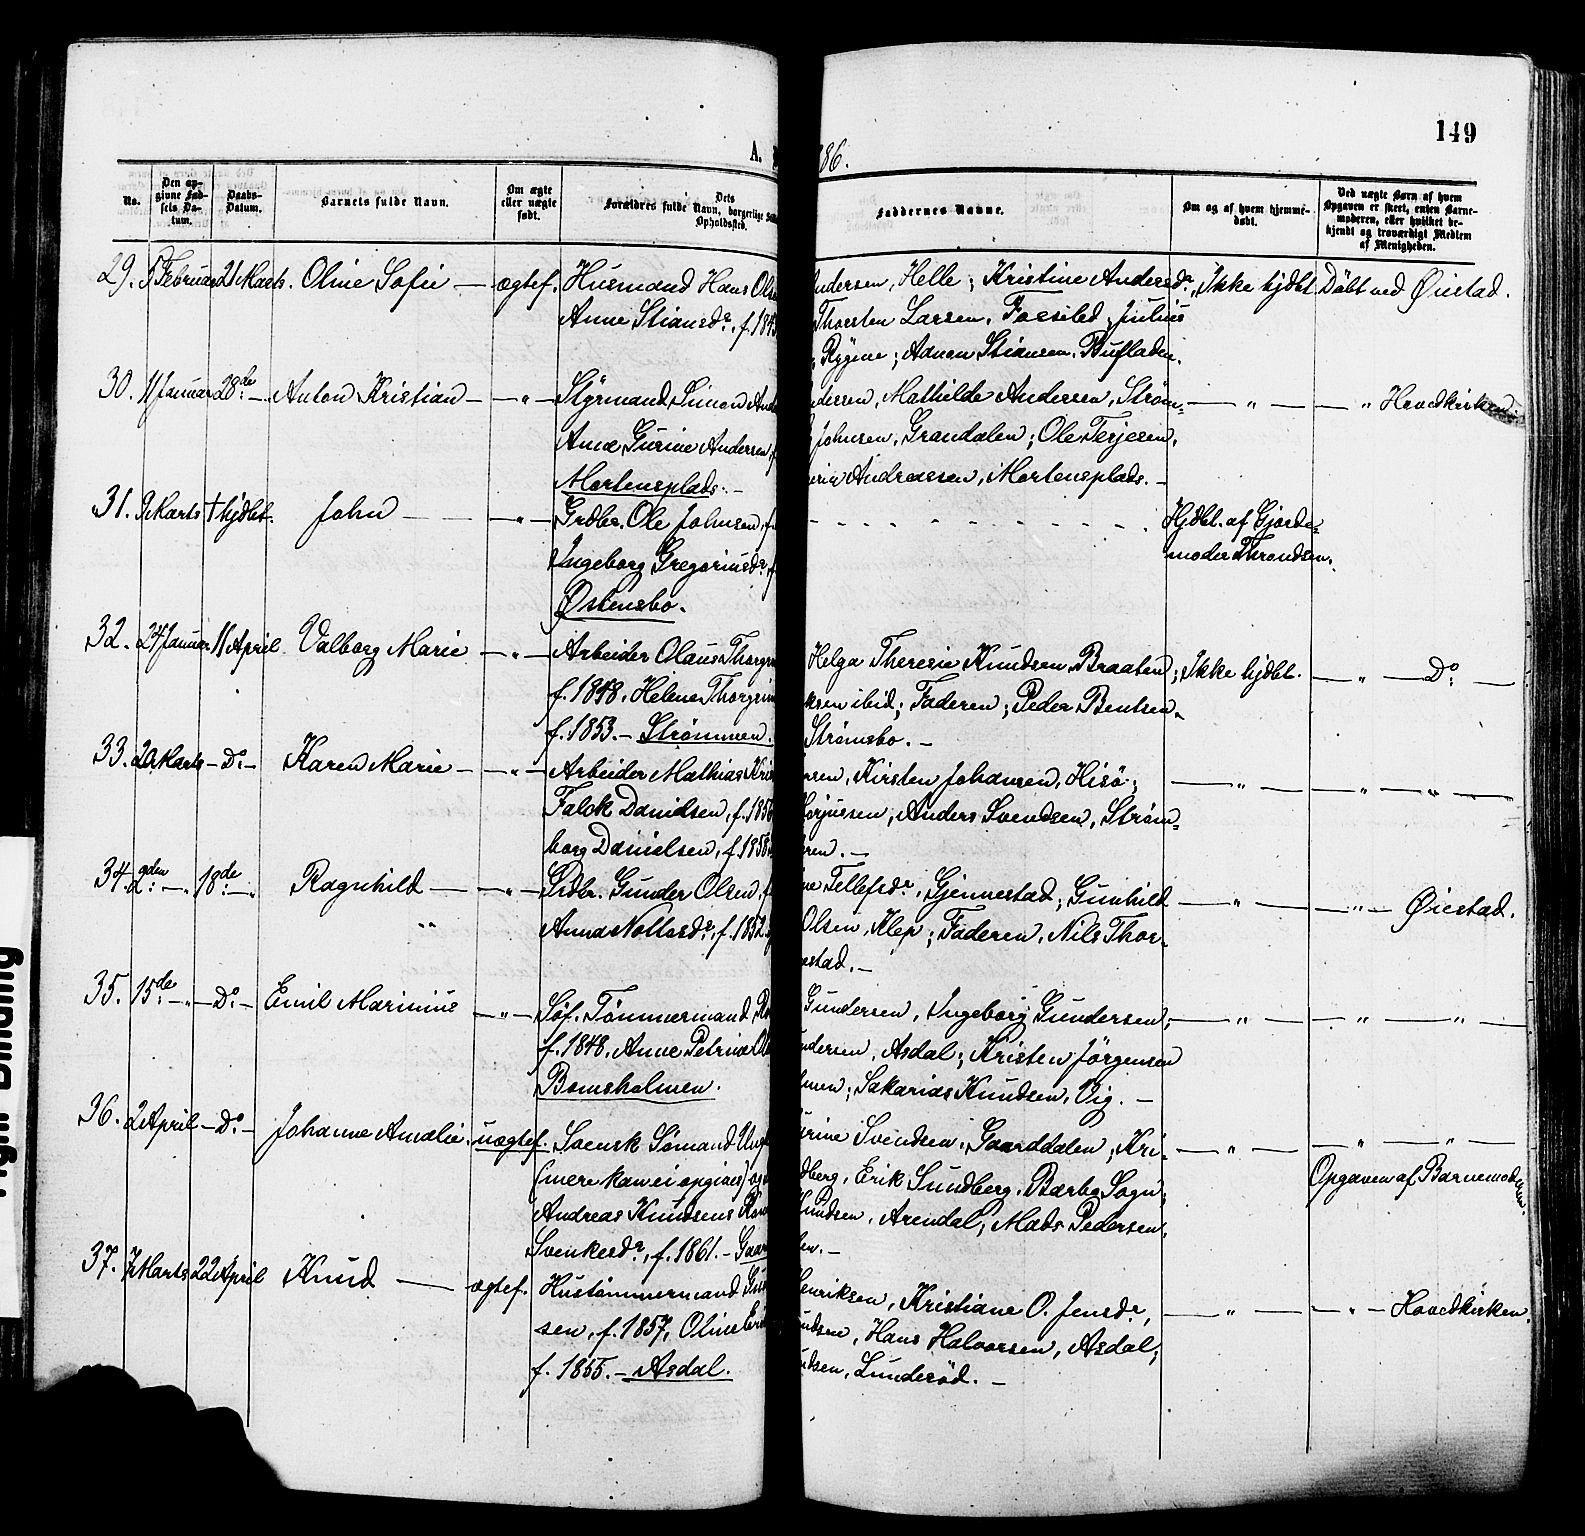 149
A.
86.
No.
Den opgivne Fødsels Datum.
Daabs-Datum.
Barnets fulde Navn.
Om ægte eller uægte født.
Dets Forældres fulde Navn, borgerlige
Opholdssted.
Faddernes Navne.
Om og af hvem hjemmedøbt.
Ved uægte Børn af hvem Opgaven er skeet, enten Barnemoderen, eller hvilket bekjendt og troværdigt Medlem af Menigheden.
29. 5 Februar 21 Marts. Oline Sofie — ægtef. Husmand Hans Olse
Anne Stiansdr., f. 184
Andersen, Helle; Kristine Andersdr., Ikke hjdbt. Döbt ved Øiestad.
Thorsten Larsen, Julius
Rygene; Adnon Stiansen, Bufladen.
30. 11 Januar 28de — Anton Kristian — " — Styrmand Simon And
Anne Gurine Andersen, f
Mortensplads. —
dersen, Mathilde Andersen, Ström= — " — — " Hovedkirken.
Johnsen, Grandalen; Ole Terjesen,
Andreassen, Mortensplads. —
31. 9 Marts † hjdbt. John — — " — Grdbr. Ole Johnsen, f.
Ingeborg Gregoriusdr., f
Østensbo.
Hjdbt. af Gjorde=
moder Throndsen.
32. 24 Januar 11 April Valborg Marie — " — Arbeider Olaus Thorgri
f. 1848, Helene Thorgrim
f. 1853. — Strømmen.
Helga Theresie Knudsen, Braaten; Ikke hjdbt. — " — Do. —
ksen ibid; Faderen; Peder Bentsen,
Strømsbo. —
33. 20 Marts — Do. — Karen Marie — — " — Arbeider Mathias Kris
Falck Danielsen, f. 185
borg Danielsen, f. 1858.
rsen, Kirsten Johansen, Hisö; — " — — " — " —
orjusen, Anders Svendsen, Ström=
ren. —
34. 9den — " — 18de — " Ragnhild — — " — Grdbr. Gunder Olsen, f
Anna Nottosdr., f. 1852.
ne Tellefsdr., Gjennestad; Gunhild — " — — " — Øiestad.
Olsen, Klep; Faderen, Nils Thor-
estad. —
35. 15de — " — Do. — Emil Marinius — " — Søf. Tömmermand
f. 1848, Anne Petrine Ols
Bomsholmen.
Gundersen, Ingeborg Gundersen; — " — — " — " —
ndersen, Asdal; Kristen Jörgensen
lmen; Sakarias Knudsen, Vig. —
36. 2 April — Do. — Johanne Amalie. uægtef. Svensk Sömand Ung
(mere kan ei opgives) og
Andreas Knudsens
Svenkesdr., f. 1861. — Gaar
urine Svendsen, Gaarddalen; Kri- — " — — " — " —
dberg, Erik Sundberg, Barbo Sogn; Opgaven af Barnemoderen.
Knudsen, Arendal; Mads Pedersen,
len. —
37. 7 Marts 22 April Knud — ægtef. Hustömmermand Gu
sen, f. 1857, Oline
f. 1855. — Asdal.
Henriksen, Kristiane O. Jensdr., — " — — " — Hovedkirken.
ndsen, Hans Halvorsen, Asdal;
udsen, Lunderöd. —